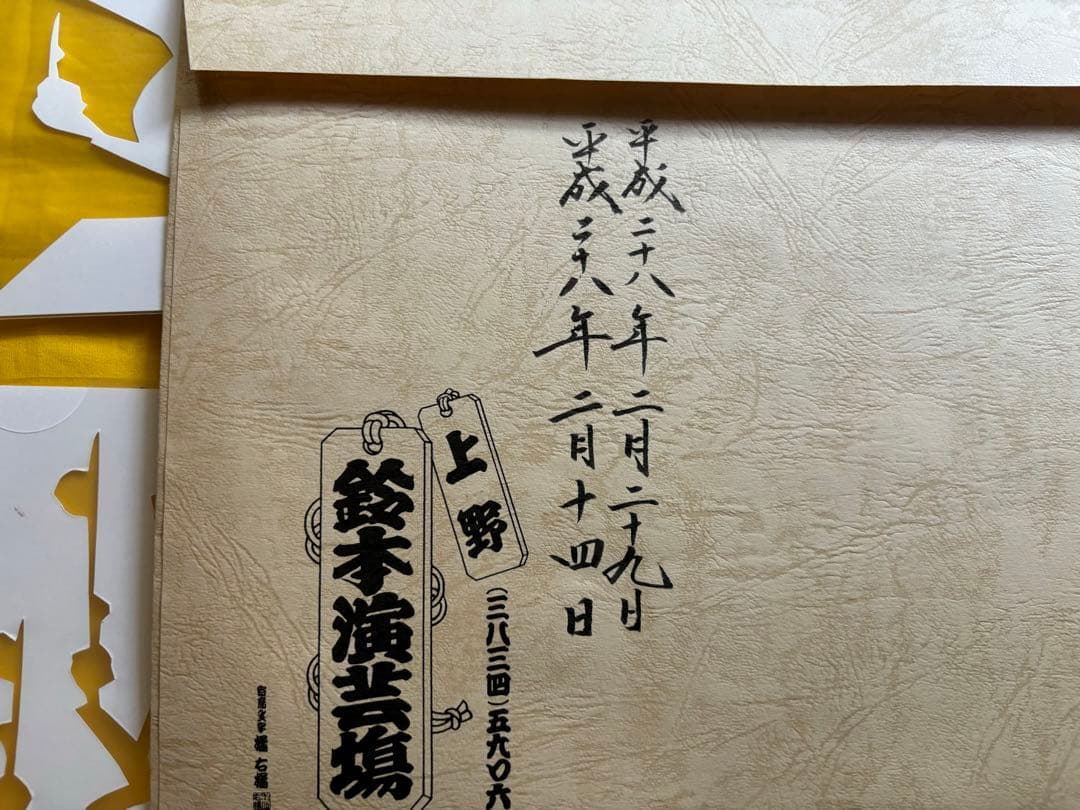 平成二十八年二月二十九日
平成二十八年二月十四日
上野
(三八三四)五九〇六
鈴本演芸場
寄席文字 橘右橘